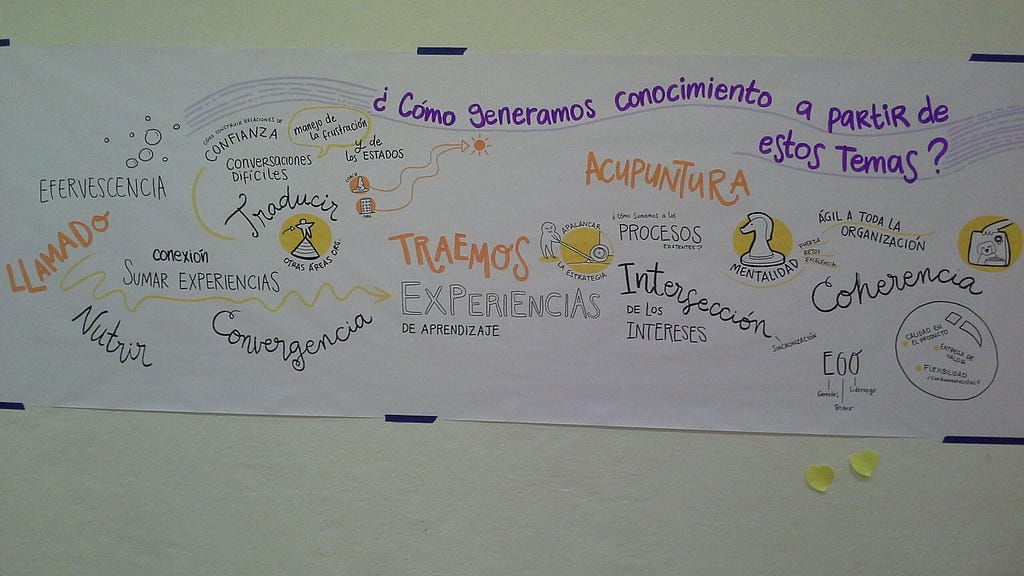 ¿Cómo generamos conocimiento a partir de
estos Temas?
EFERVESCENCIA
LLAMADO
Nutrir
CÓMO CONSTRUIR RELACIONES DE
CONFIANZA
manejo de
la frustración
y de
los ESTADOS
Conversaciones
Difíciles
Traducir
OTRAS ÁREAS ORG.
conexión
SUMAR EXPERIENCIAS
Convergencia
TRAEMOS
EXPERIENCIAS
DE APRENDIZAJE
ACUPUNTURA
APALANCAR
LA ESTRATEGIA
¿Cómo sumamos a los
PROCESOS
EXISTENTES?
Intersección
DE LOS
INTERESES
SINCRONIZACIÓN
MENTALIDAD
FUERZA
RETOS
EXCELENCIA
ÁGIL A TODA LA
ORGANIZACIÓN
Coherencia
EGO
Gerentes
Liderazgo
Técnico
CALIDAD EN
EL PRODUCTO
ENTREGA DE
VALOR
FLEXIBILIDAD